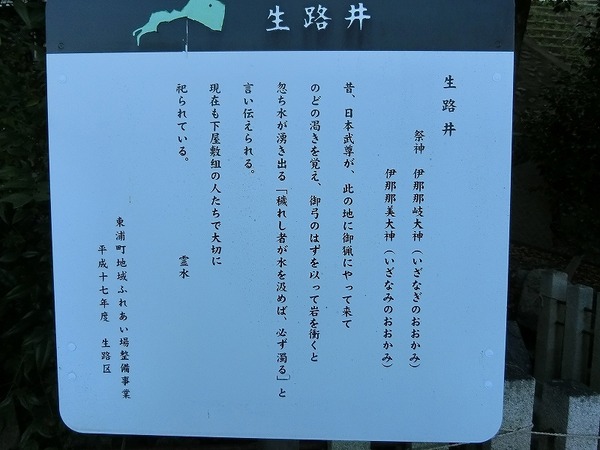 生路井
生路井
祭神 伊那那岐大神(いざなぎのおおかみ)
伊那那美大神(いざなみのおおかみ)
昔、日本武尊が、此の地に御猟にやって来て
のどの渇きを覚え、御弓のはずを以って岩を衝くと
忽ち水が湧き出る「穢れし者が水を汲めば、必ず濁る」と
言い伝えられる。
現在も下屋敷組の人たちで大切に
祀られている。 霊水
東浦町地域ふれあい場整備事業
平成十七年度 生路区